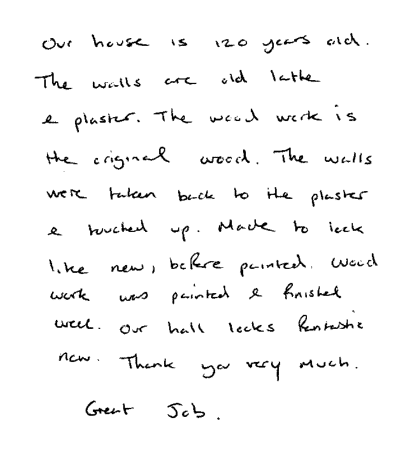 Our house is 120 years old.
The walls are old lathe
& plaster. The wood work is
the original wood. The walls
were taken back to the plaster
& touched up. Made to look
like new, before painted. Wood
work was painted & finished
well. Our hall looks fantastic
now. Thank you very much.
Great Job.